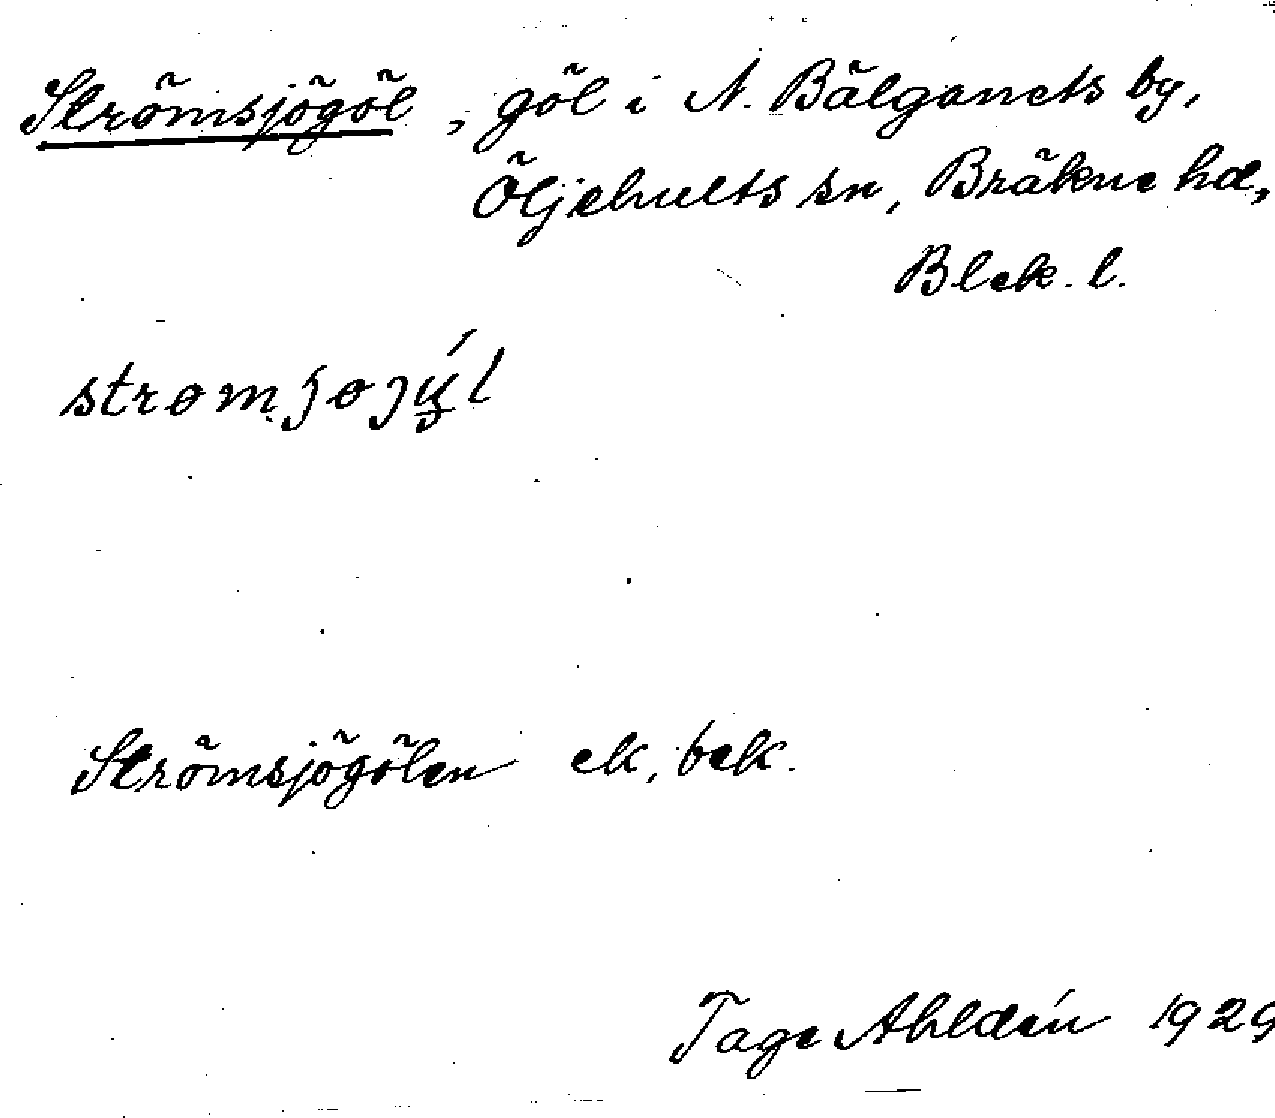 Strömsjögöl, göl i N. Bälganets by,
Öljehults sn, Bräkne hd,
Blek. l.
Strömsjögölen ek, bek.
Tage Ahldén 1929